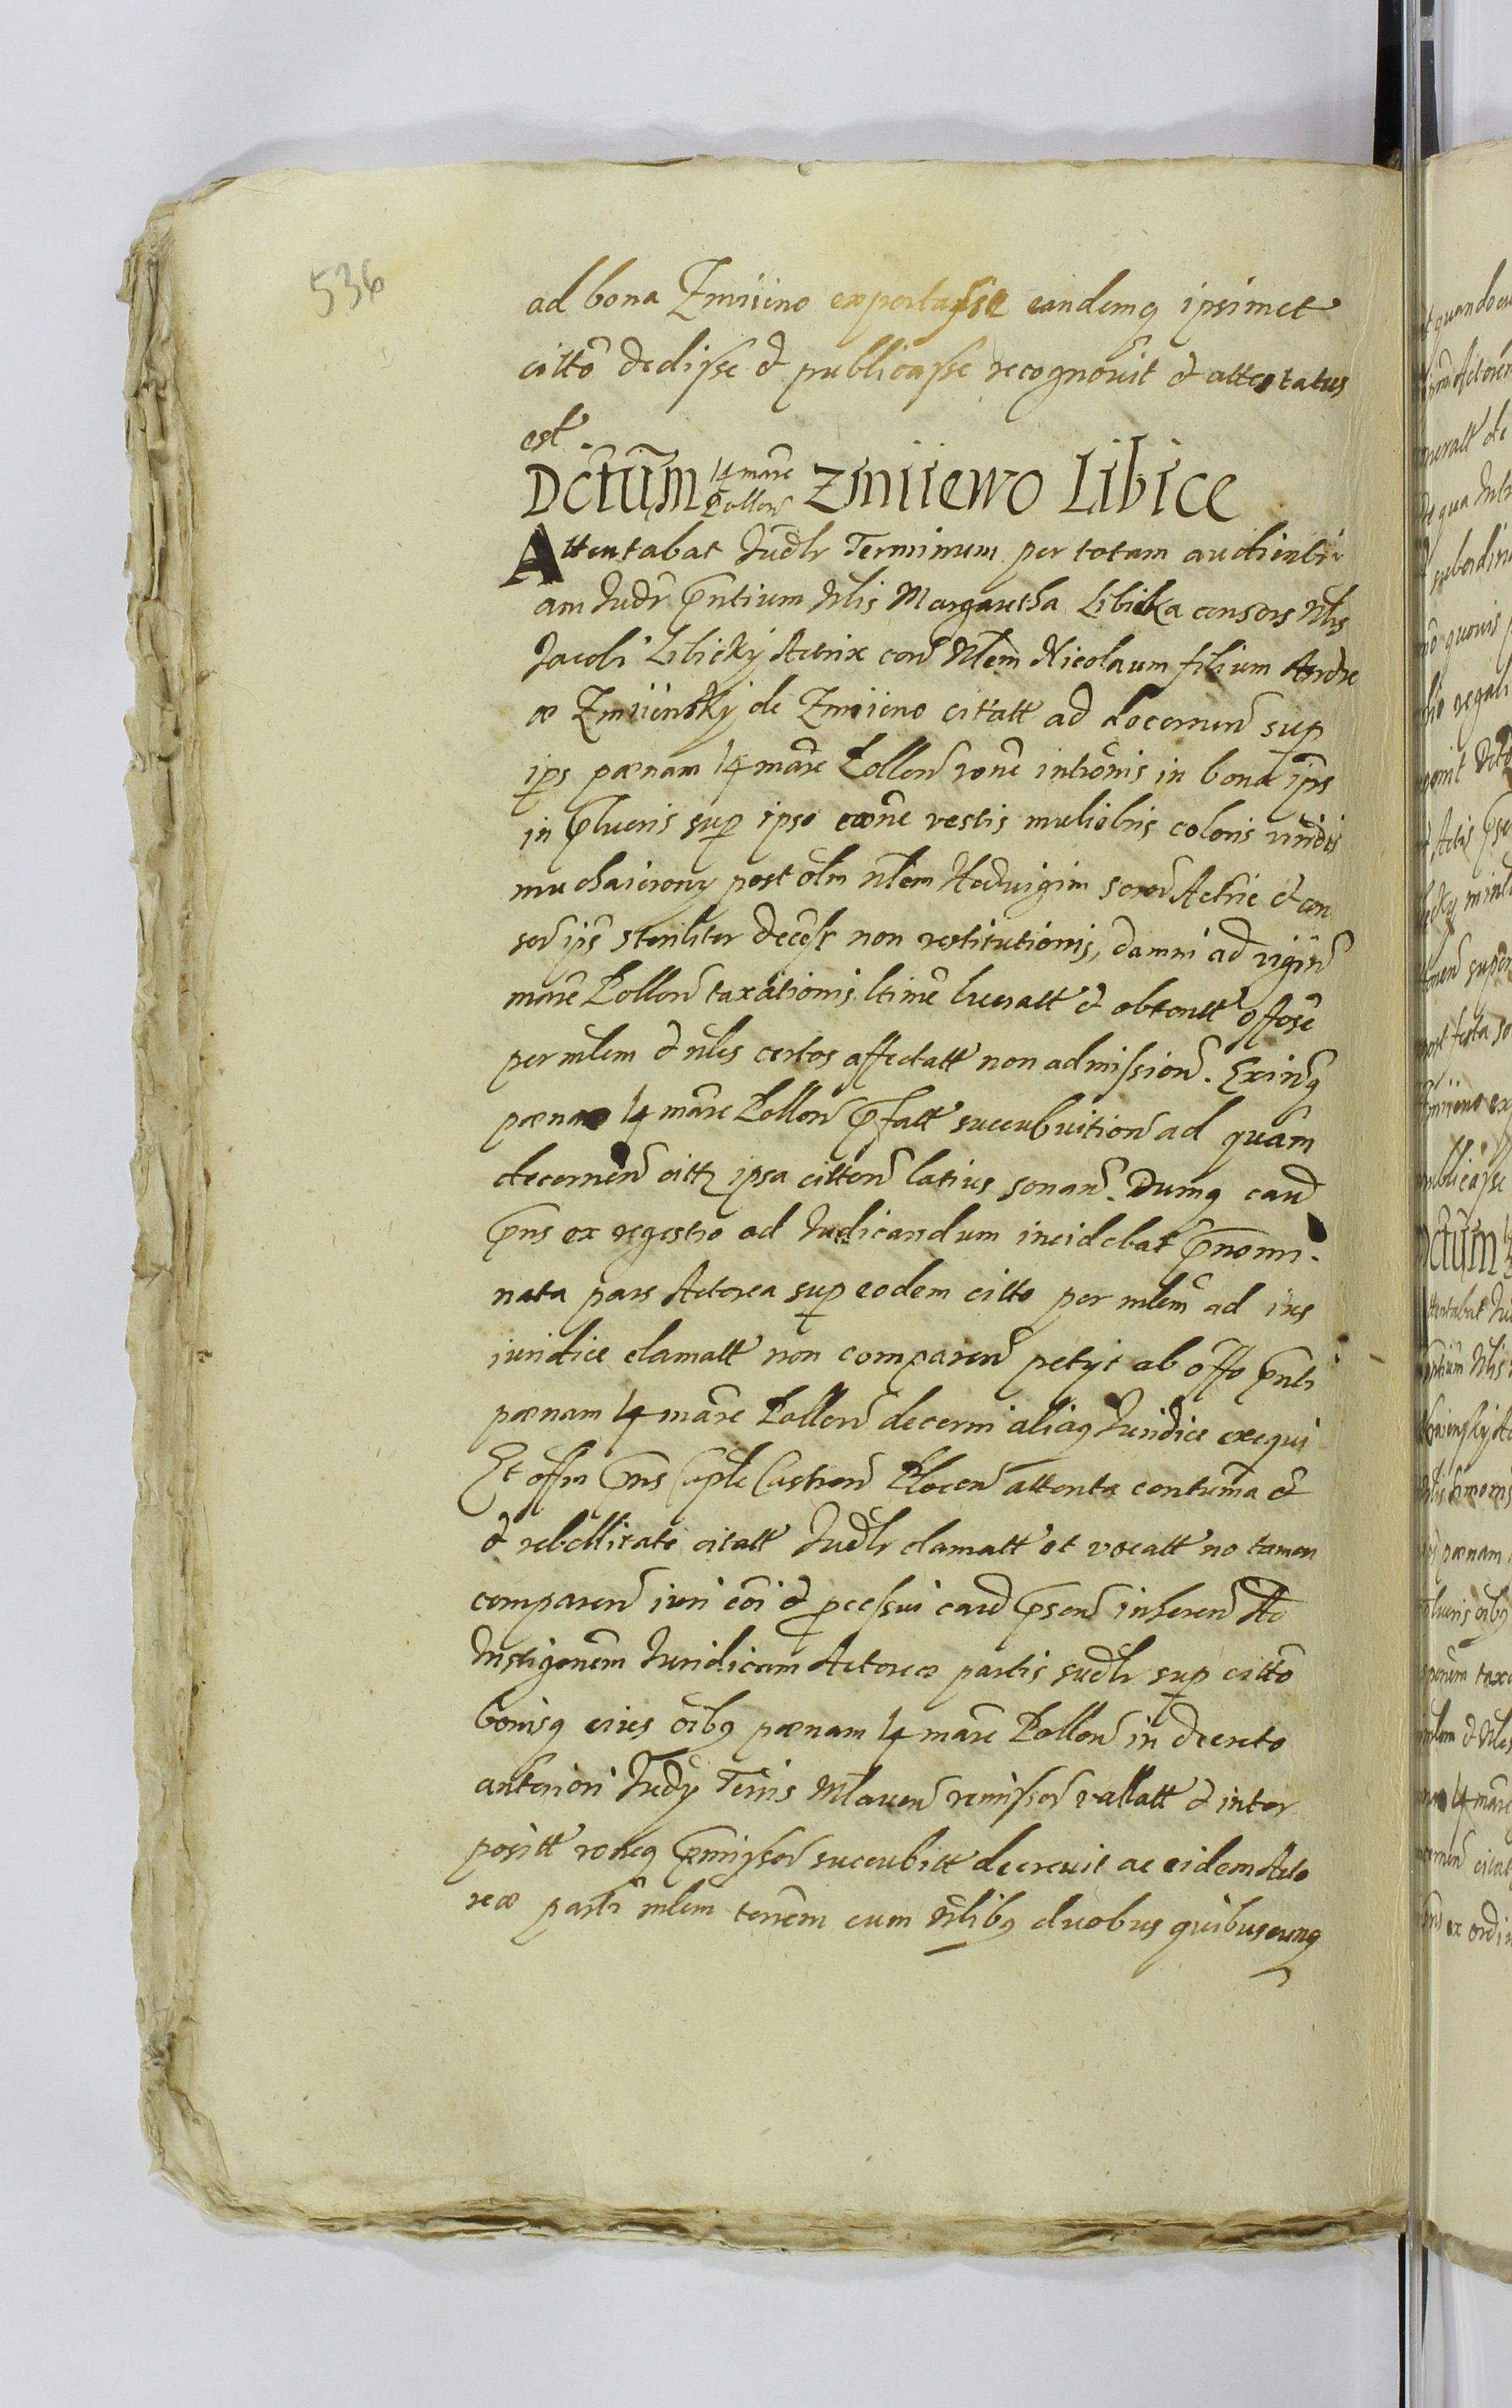 536
ad bona Zmiieno exportasse eandemq ipsimet
citto dedisse et publicasse recognovit et attestatus
est.
Dctum 14 marc Pollon Zmiiewo Libice
Attentabat Judlr Terminum per totam audienti
am Judr pntium Nlis Margaretha Libicka consors Nlis
Jacobi Libicky Actrix con Nlem Nicolaum filium Andre
æ Zmiiensky de Zmiieno citatt ad decernen sup
ips pænam 14 marc Pollon rone intronis in bona ips
in lucris sup ipso rone vestis muliebris coloris viridis
muchaierowy post olm Nlem Hedvigim soror Actric et con
sor ips steriliter decess non restitutionis, damni ad viginti
marc Pollon taxationis ltime lucratt et obtentt offose
per mlem et nles certos affectatt non admission. Exinq
pænæ 14 marc Pollon pfatt succubuition ad quam
decernen citt ipsa citton latius sonan. Dumq caud
pns ex regestro ad Judicandum incidebat pnomi-
nata pars Actorea sup eodem citto per mlem ad ius
iuridice clamatt non comparen petyt ab offo pnti
pænam 14 marc Pollon decerni aliaq Juridice exequi
Et offm pns Caplc Castren Plocen attenta contuma et
et rebellitate citatt Judlr clamatt et vocatt no tamen
comparen iuri coi et pcessui caud pson inheren Ad
Instigonem Juridicam Actoreæ partis sudlr sup citto
bonisq eius oibq pænam 14 marc Pollon in decreto
anteriori Judy Terris Mlaven remissor vallatt et inter
positt roneq pmissor succubitt decrevit ac eidem Acto
reæ parti mlem terrem cum Nlibq duobus quibuscunq